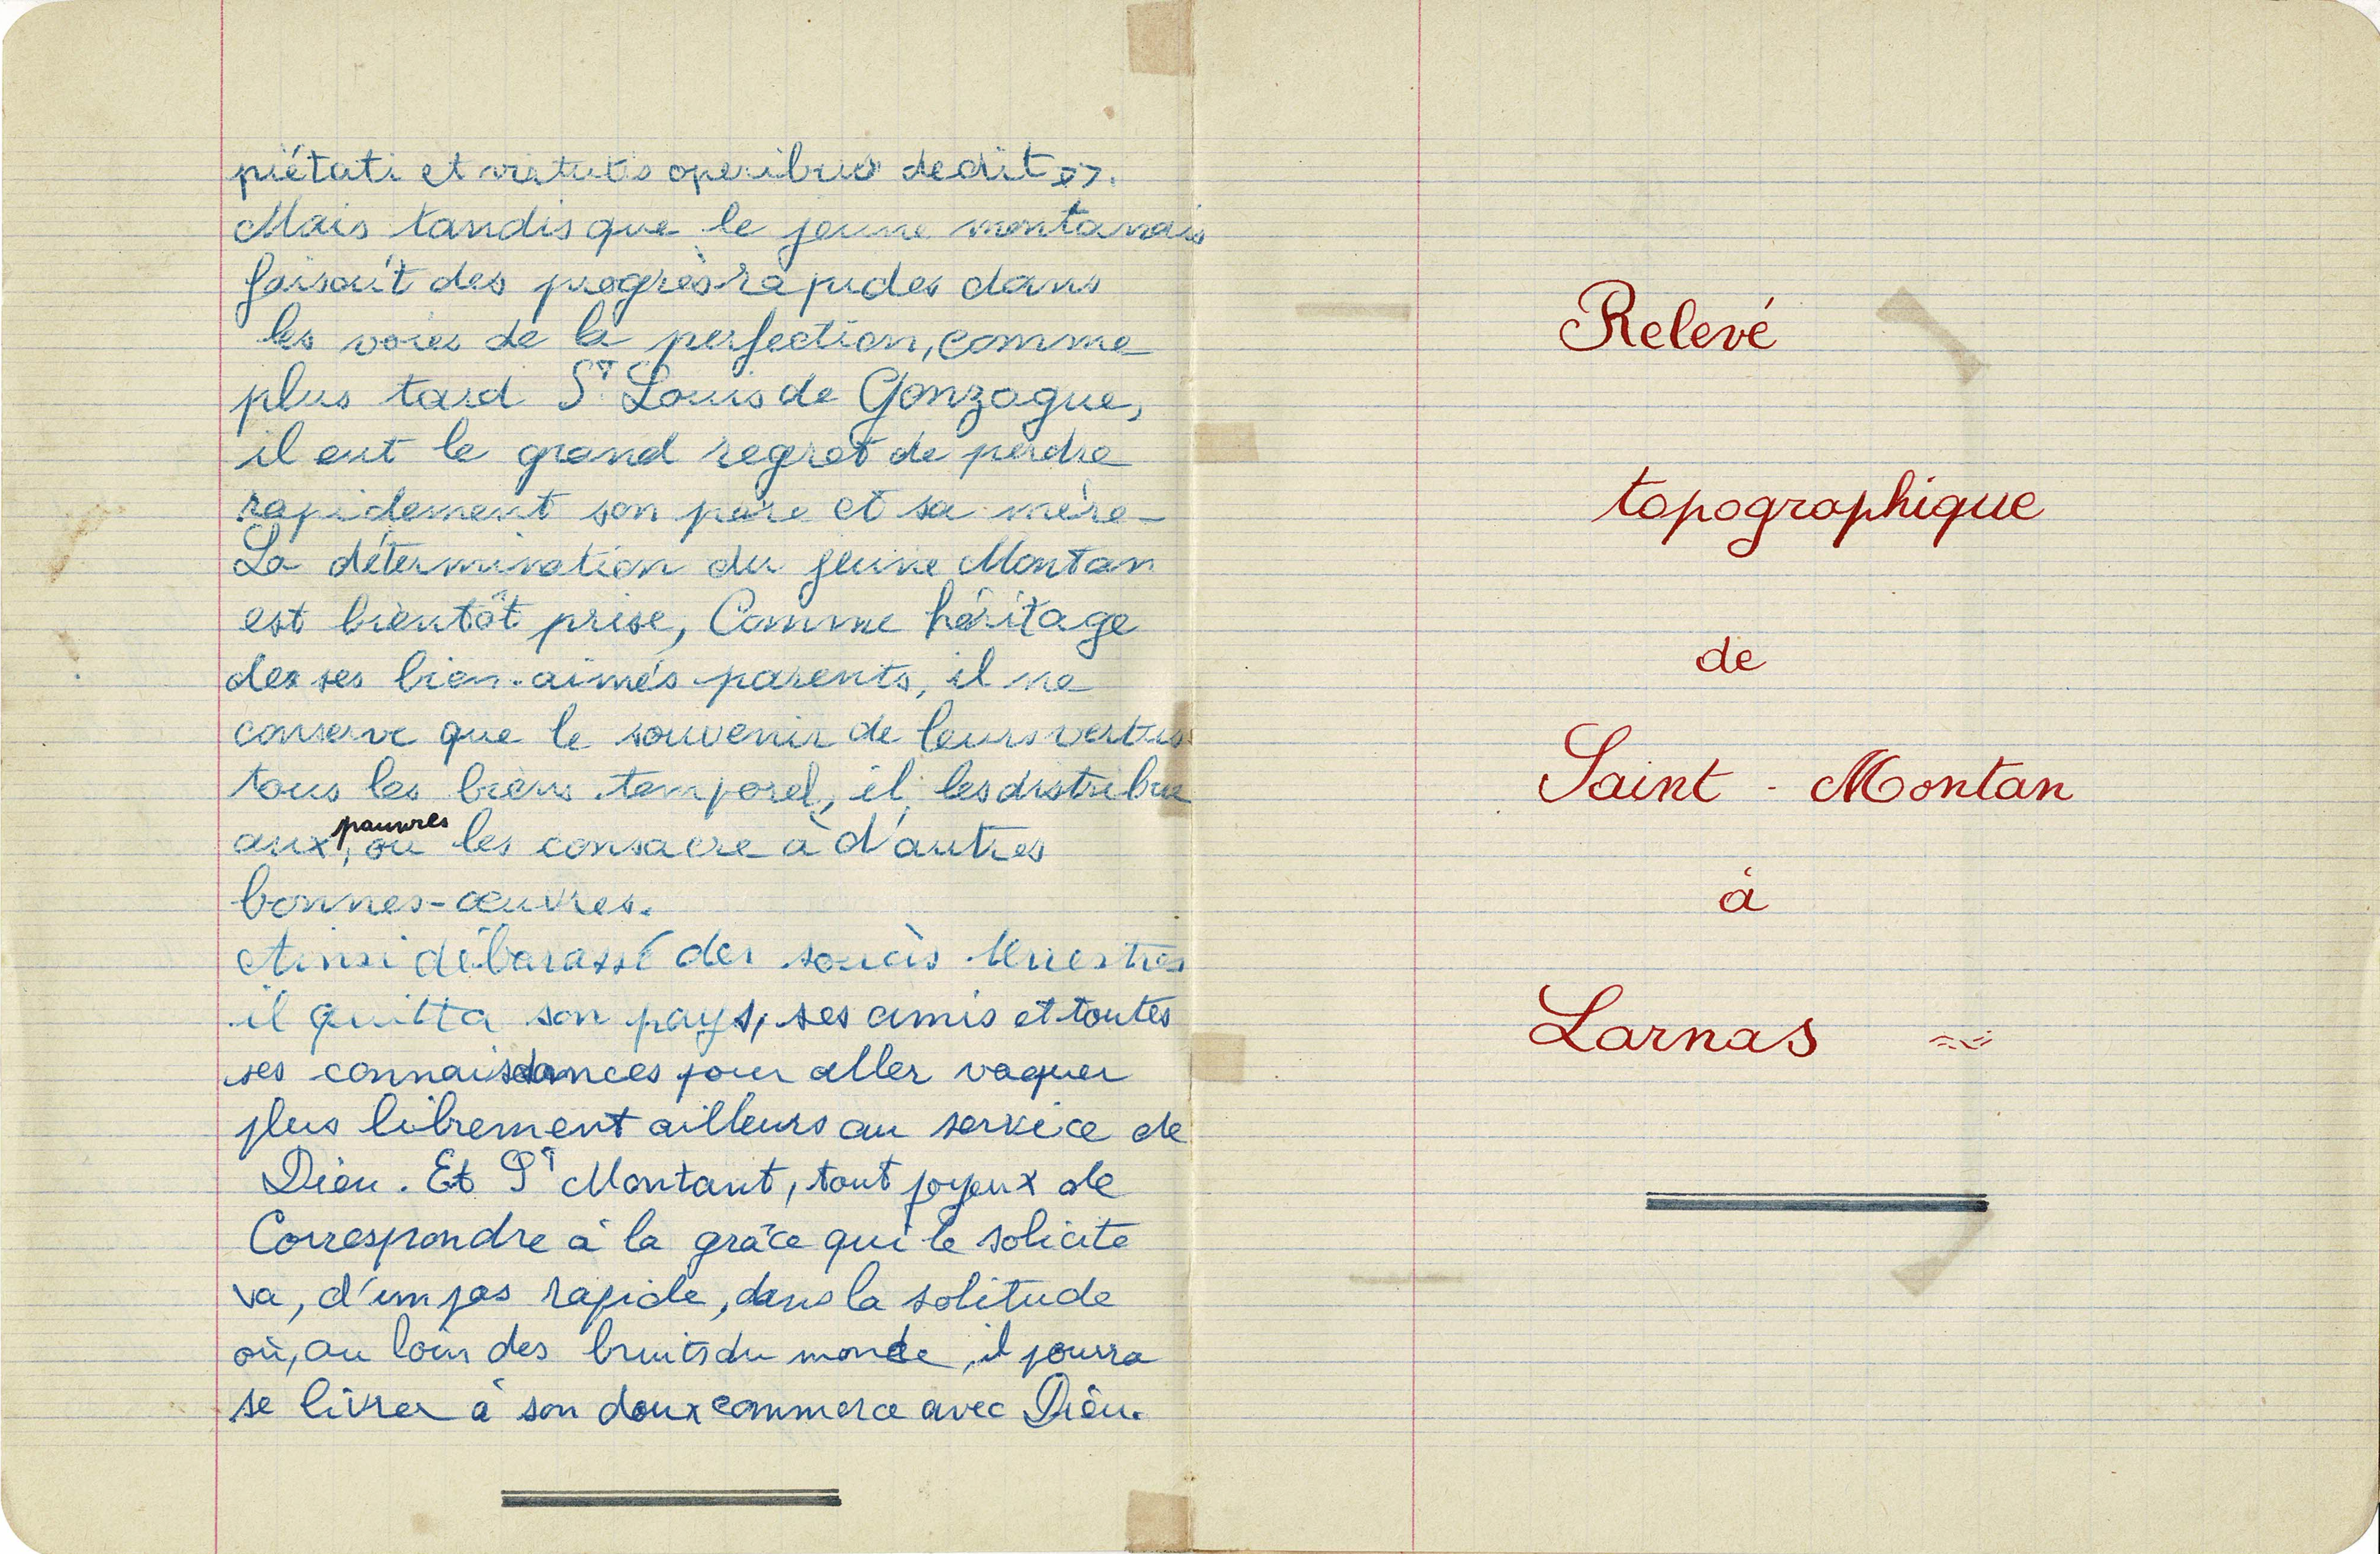 piétati et virtutis operibus dedit >>.
Mais tandis que le jeune montanais
faisait des progrès rapides dans
les voies de la perfection, comme
plus tard St Louis de Gonzague,
il eut le grand regret de perdre
rapidement son père et sa mère-
La détermination du jeune Montan
est bientôt prise, Comme héritage
des ses bien-aimés parents, il ne
conserve que le souvenir de leurs vertus
tous les biens temporel, il les distribue
aux pauvres, ou les consacre à d'autres
bonnes-œuvres.
Ainsi débarassé des soucis terrestres
il quitta son pays, ses amis et toutes
ses connaissances pour aller vaquer
plus librement ailleurs au service de
Dieu. Et St Montant, tout joyeux de
Correspondre à la grâce qui le solicite
va, d'un pas rapide, dans la solitude
où, au loin des bruits du monde, il pourra
se livrer à son doux commerce avec Dieu.
Relevé
topographique
de
Saint - Montan
à
Larnas